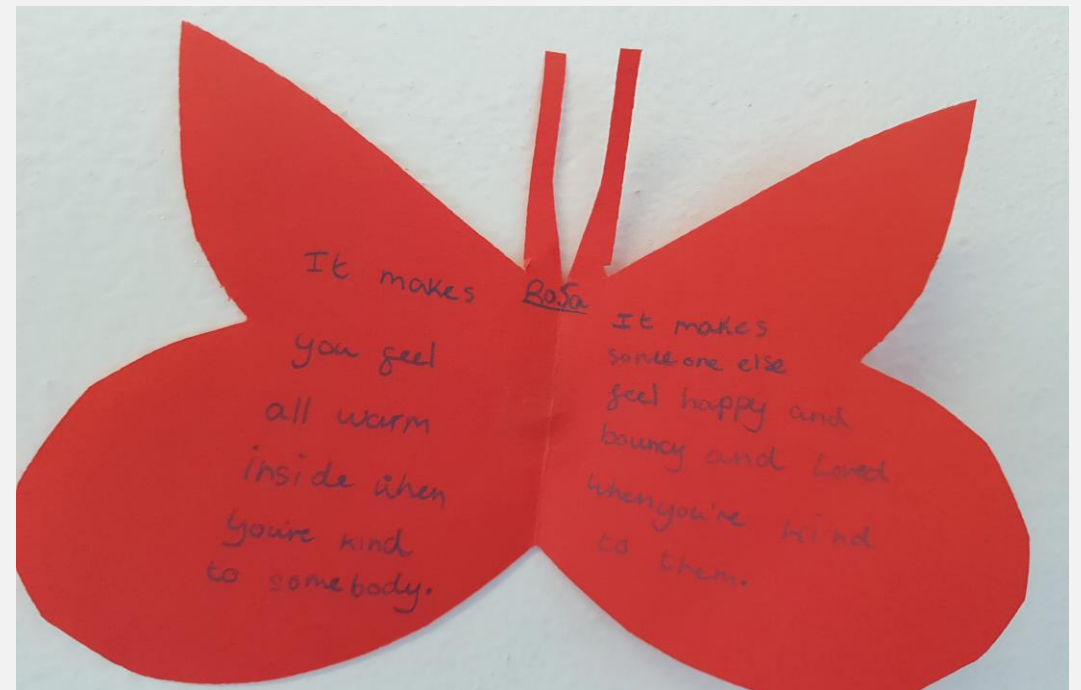 Rosa
It makes
you feel
all warm
inside when
you're kind
to somebody.
It makes
someone else
feel happy and
bouncy and Loved
when you're kind
to them.